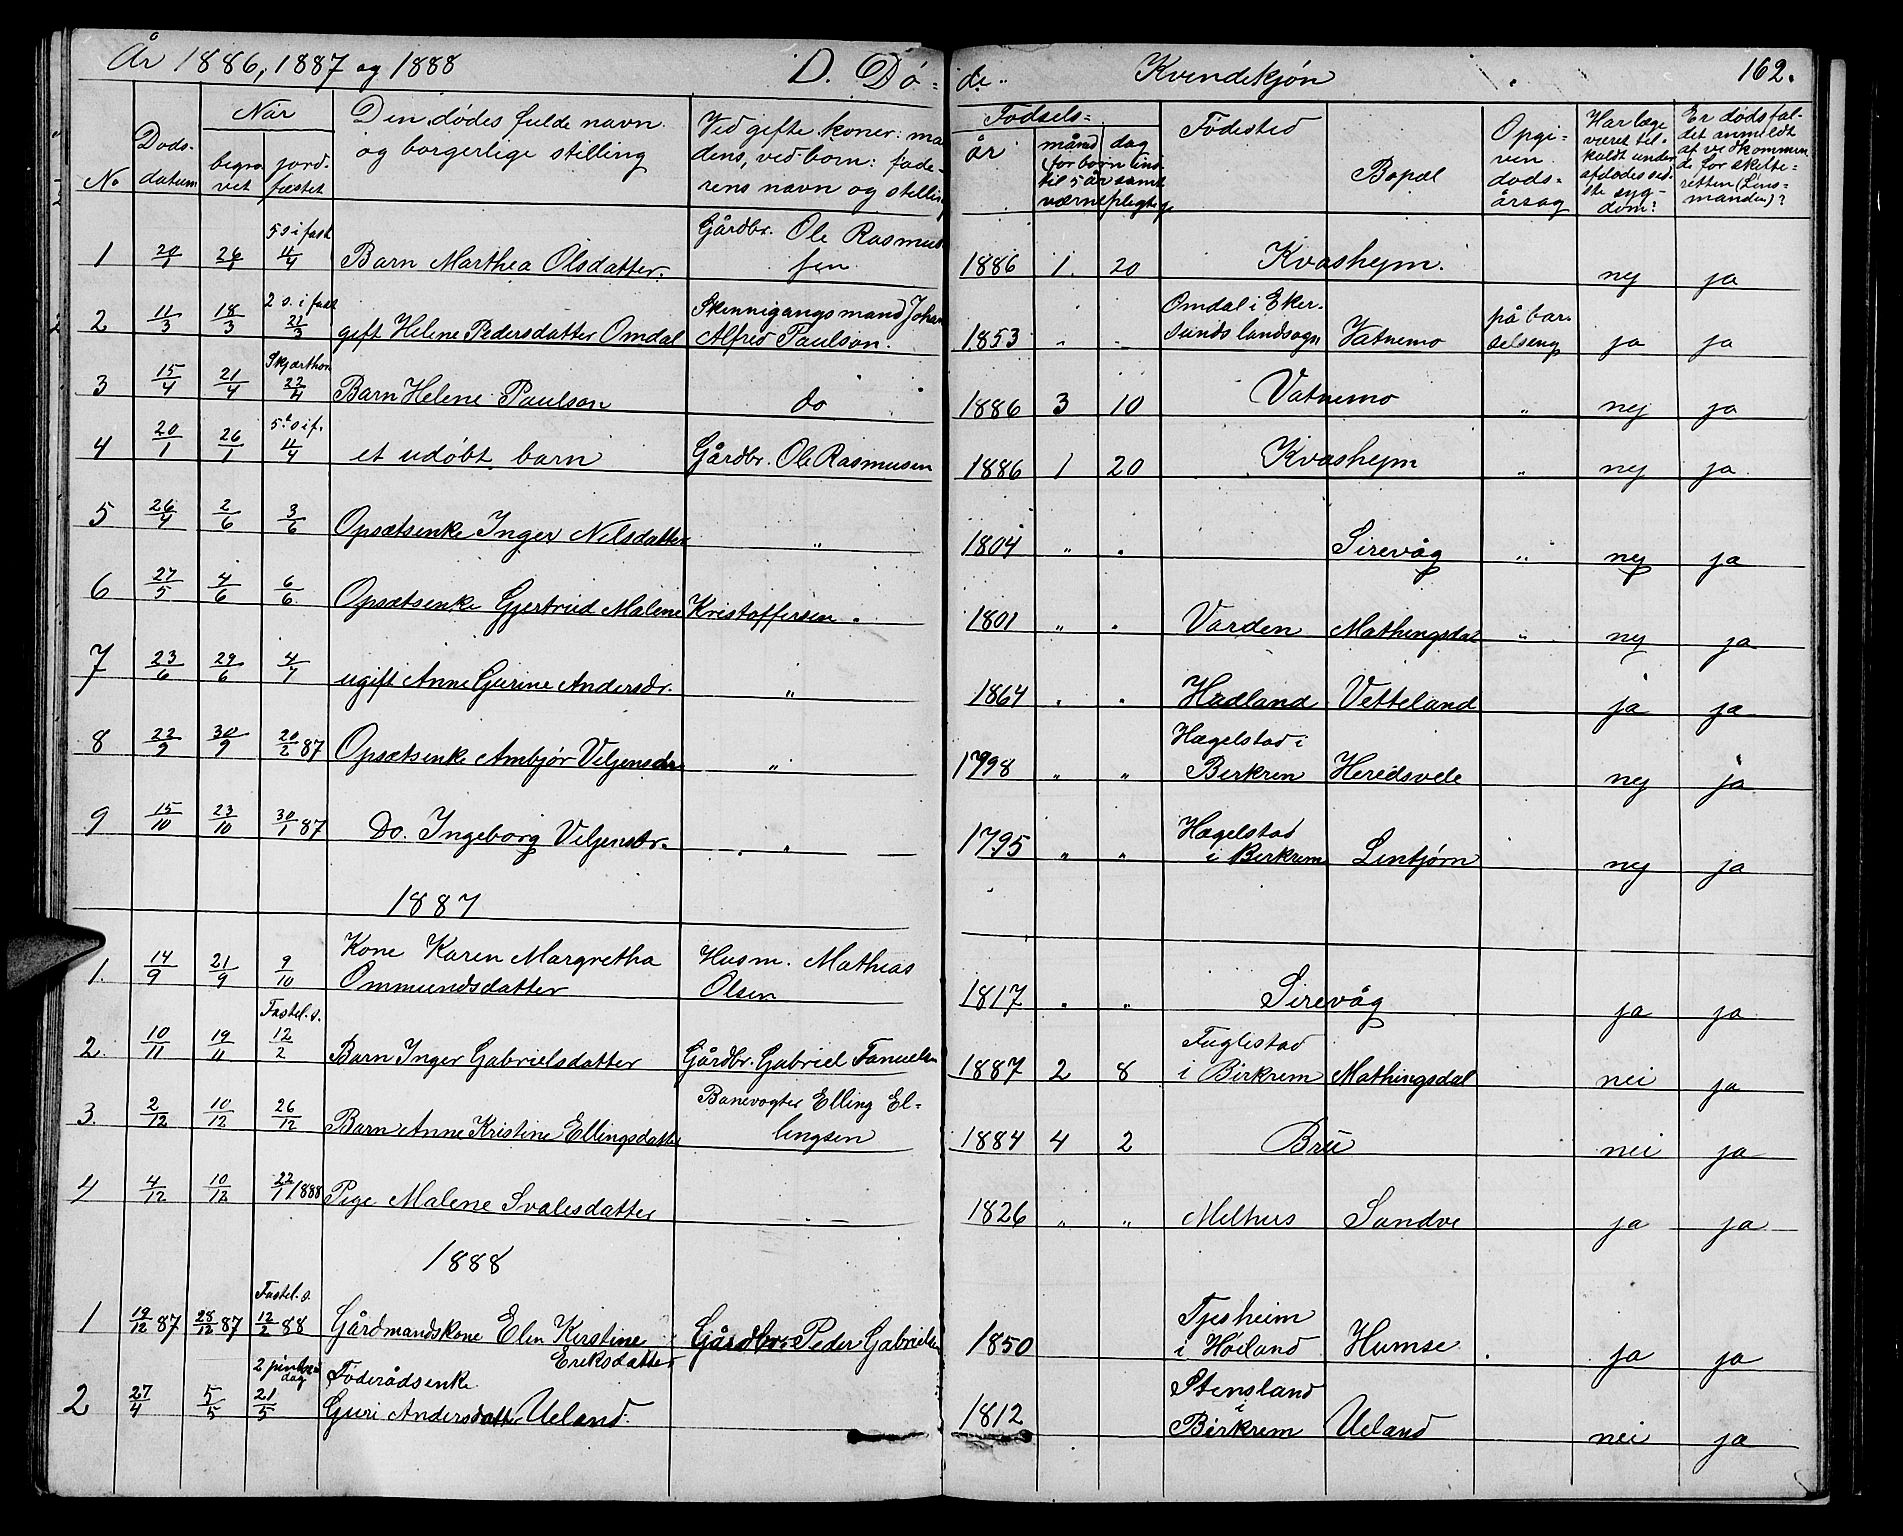 År 1886, 1887 og 1888 D. Døde. Kvindekjøn 162.
No Døds-datum Når begravet jordfæstet Den dødes fulde navn og borgerlige stilling Ved gifte koner: mandens, ved børn: faderens navn og stilling Fødsels- år månd dag (for børn indtil 5 år samt værnepligtige Fødested Bopæl Opgiven dødsårsag Har læge været tilkaldt under afdødes sidste sygdom? Er dødsfaldet anmeldt af vedkommende for skifteretten (Lensmanden)?
5 s i fast Gårdbr. Ole Rasmus-
1 20/1 26/1 11/4 Barn Marthea Olsdatter. sen 1886 1. 20 Kvashejm. nej ja
2 s. i fast Skinnigangsmand Johan Omdal i Eker- på bar-
2 11/3 18/3 21/3 gift Helene Pedersdatter Omdal Alfred Paulson. 1853 " - sunds landsogn Vatnemo selseng ja ja
Skjærthor
3 15/4 21/4 22/4 Barn Helene Paulson do 1886 3 10 Vatnemo " nej ja
5te s i f.
4 20/1 26/1 11/4 et udøbt barn Gårdbr. Ole Rasmusen 1886 1 20 Kvashejm " nej ja
5 26/4 2/6 3/6 Opsætsenke Inger Nilsdatter " 1804 " " Sirevåg " nej ja
6 27/5 4/6 6/6 Opsætsenke Gjertrud Malene Kristoffersen. 1801 " " Varden Mathingsdal " nej ja
7 23/6 29/6 4/7 ugift Anne Gurine Andersdr. " 1864 " " Hadland Vetteland ja ja
Hægelstad i
8 22/9 30/9 20/2 87 Opsætsenke Ambjør Veljensdr " 1798 " " Birkrem Heredsvele nej ja
Hægelstad
9 15/10 23/10 30/1 87 Do. Ingeborg Veljensdr. " 1795 " " i Birkrem Lintjørn nej ja
1887
Kone Karen Margretha Husm. Mathias
1. 14/9 21/9 9/10 Ommundsdatter Olsen 1817 " " Sirevåg ja ja
Fastel. s. Fuglestad
2. 10/11 19/11 12/2 Barn Inger Gabrielsdatter Gårdbr. Gabriel Tanuelsen 1887 2 8 i Birkrem Mathingsdal nei ja
Banevogter Elling El-
3. 2/12 10/12 26/12 Barn Anne Kristine Ellingsdatter lingsen 1884 4 2 Bru nei ja
4 4/12 10/12 22/1 1888 Pige Malene Svalesdatter - " - 1826 " " Melhus Sandve ja ja
1888
Fastel. s. Tjesheim
1 19/12 87 28/12 87 12/2 88 Gårdmandskone Elen Kirstine Gårdbr. Peder Gabrielsen 1850 i Høiland Humse ja ja
Eriksdatter
2 pintse dag Føderådsenke Stensland
2 27/4 5/5 21/5 Guri Andersdatt Ueland. 1812 i Birkrem Ueland nei ja